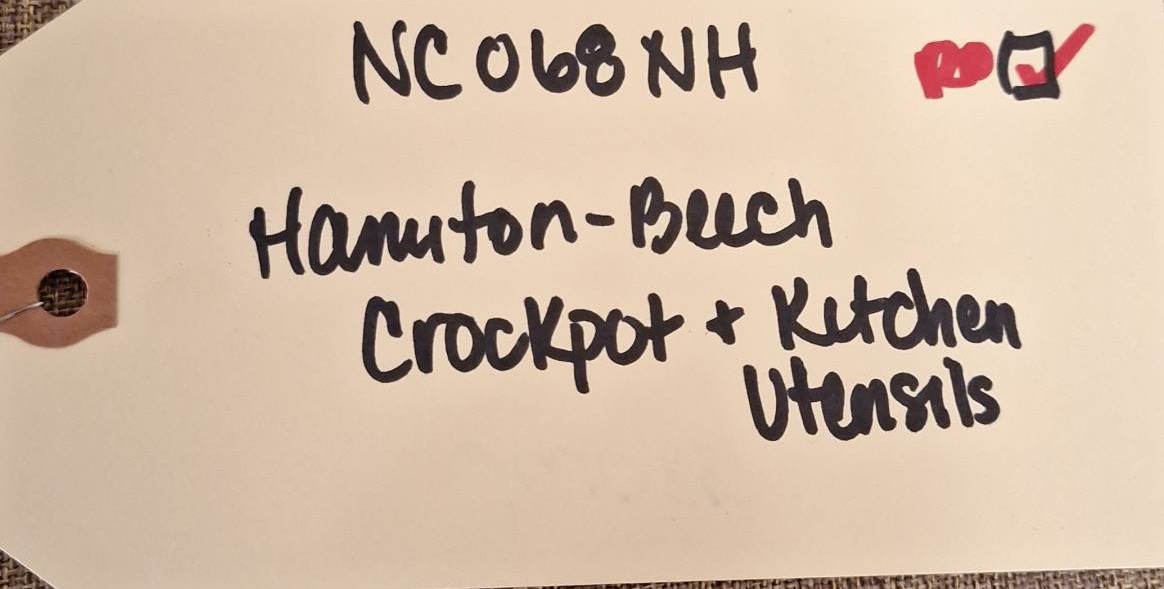 NC068NH
Hamiton-Beech
Crockpot + Kitchen
Utensils